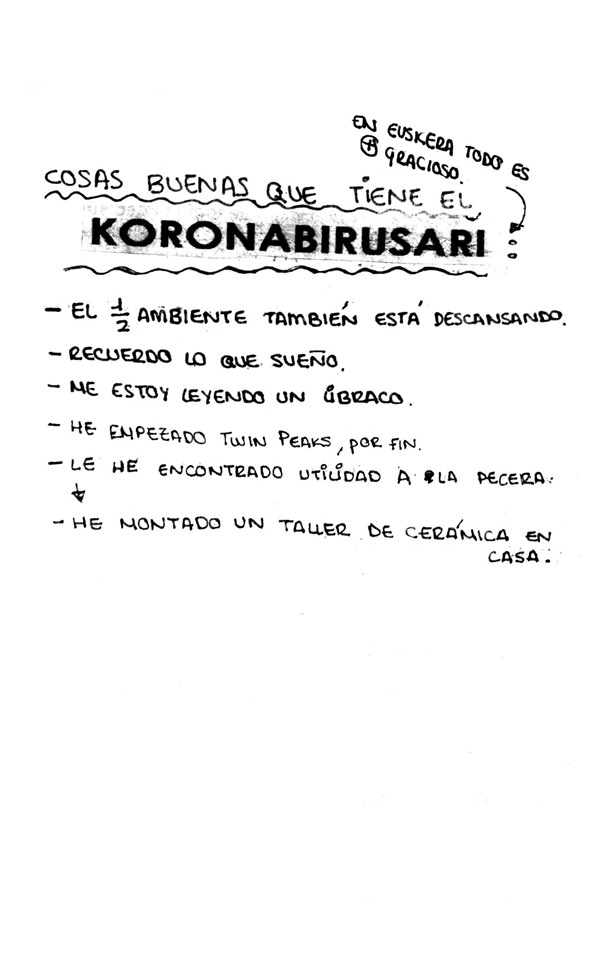 EN EUSKERA TODO ES
⊕ GRACIOSO.
COSAS BUENAS QUE TIENE EL
KORONABIRUSARI:
- EL 1/2 AMBIENTE TAMBIÉN ESTÁ DESCANSANDO.
- RECUERDO LO QUE SUEÑO.
- ME ESTOY LEYENDO UN LIBRACO.
- HE EMPEZADO TWIN PEAKS, POR FIN.
- LE HE ENCONTRADO UTILIDAD A LA PECERA:
- HE MONTADO UN TALLER DE CERÁMICA EN
CASA.